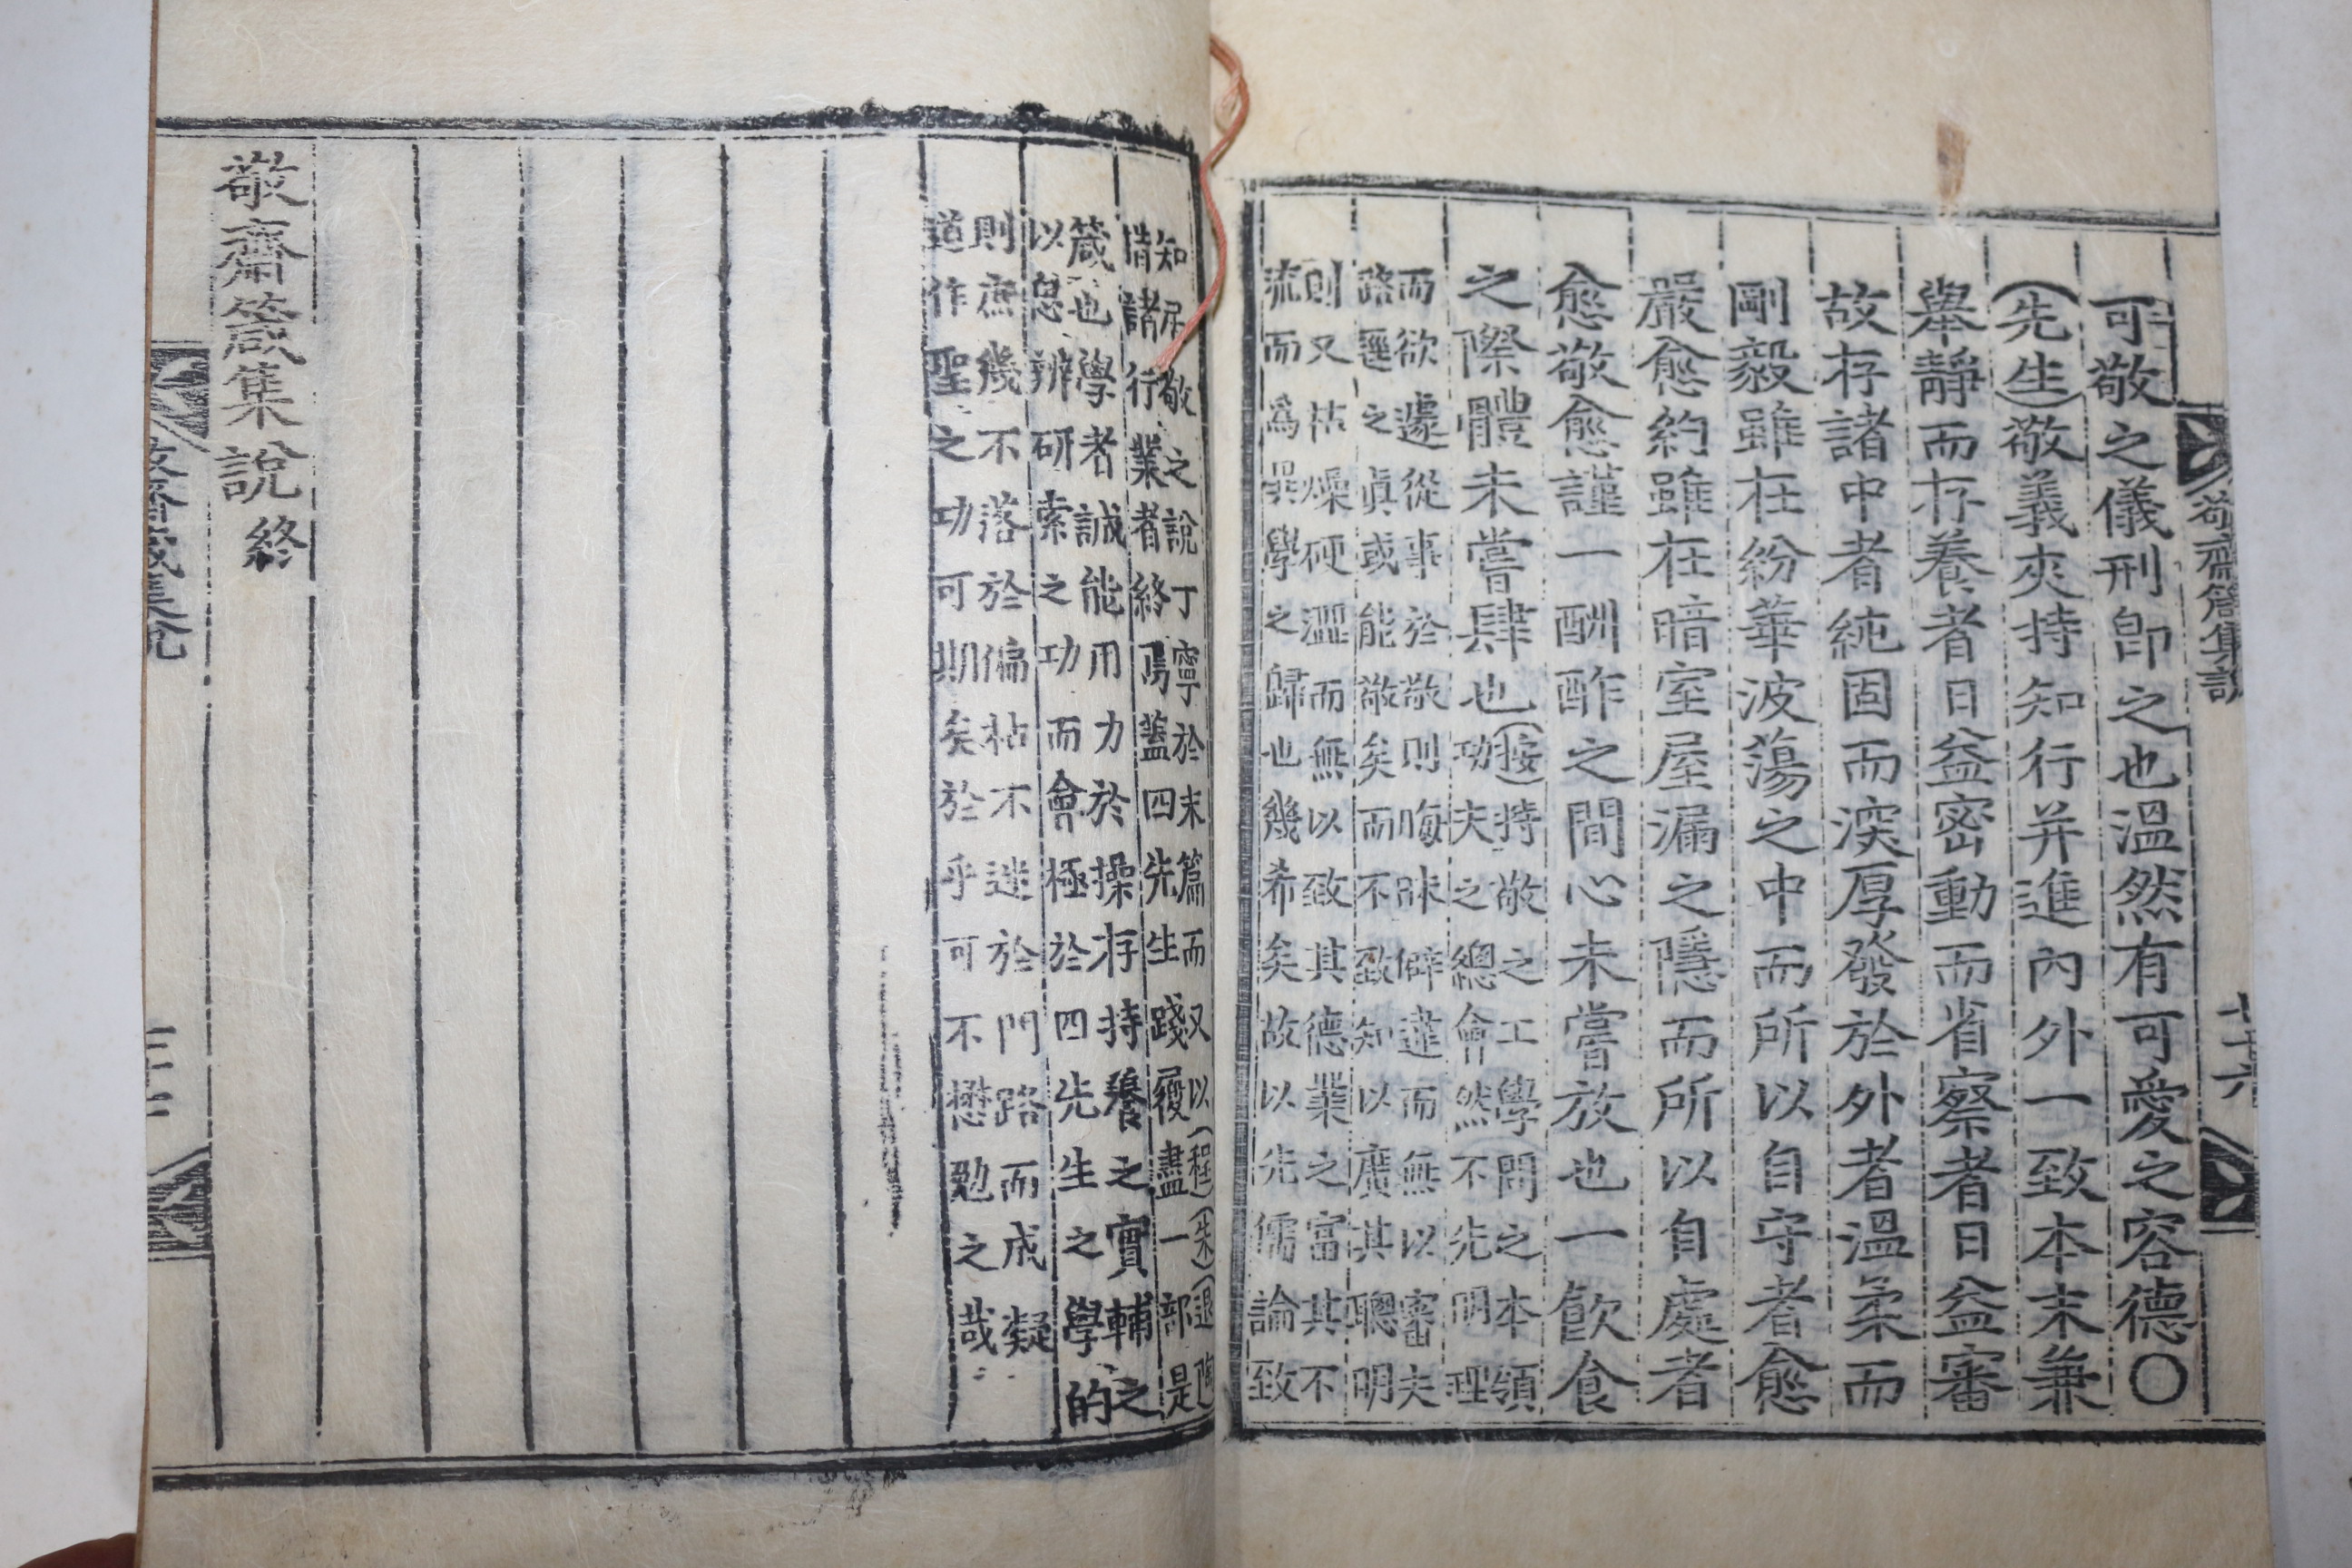 敬齋箴集說
可敬之儀刑卽之也溫然有可愛之容德○
(先生)敬義夾持知行并進內外一致本末兼
擧靜而存養者日益密動而省察者日益審
故存諸中者純固而深厚發於外者溫柔而
剛毅雖在紛華波蕩之中而所以自守者愈
嚴愈約雖在暗室屋漏之隱而所以自處者
愈敬愈謹一酬酢之間心未嘗放也一飮食
之際體未嘗肆也
(按)持敬之工學問之本領
功夫之總會然不先明理
而欲遽從事於敬則晦昧僻違而無以審夫
路逕之眞或能敬矣而不致知以廣其聰明
則又枯燥硬澀而無以致其德業之富其不
流而爲異學之歸也幾希矣故以先儒論致
知居敬之說丁寧於末篇而又以(程)(朱)(退陶)
惜諸行業者終焉蓋四先生踐履盡一部是
箴也學者誠能用力於操存持養之實輔之
以思辨硏索之功而會極於四先生之學的
則庶幾不落於偏枯不迷於門路而成凝
道作聖之功可期矣於乎可不懋勉之哉
敬齋箴集說 終